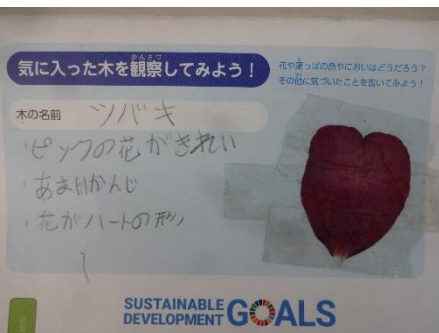 気に入った木を観察してみよう！
かんさつ
花や葉っぱの色やにおいはどうだろう？
その他に気づいたことを書いてみよう！
木の名前 ツバキ
・ピンクの花がきれい
・あまいかんじ
・花がハートの形
SUSTAINABLE
DEVELOPMENT GOALS